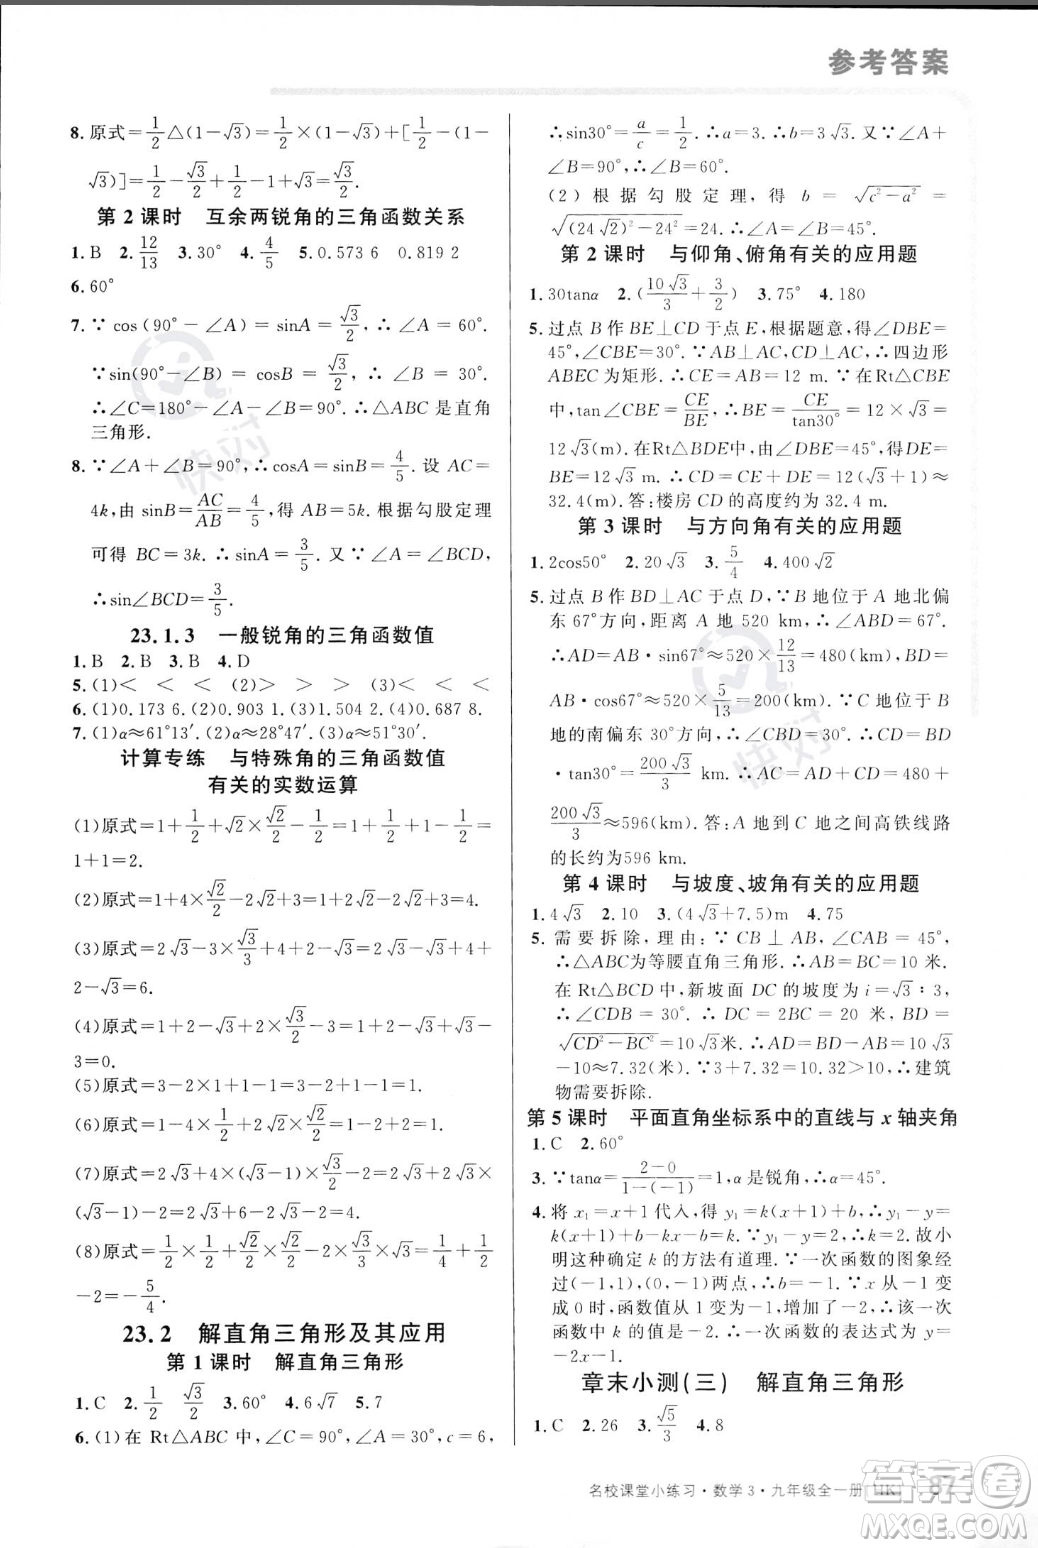 参考答案
8.原式=1/2△(1-√3)=1/2×(1-√3)+[1/2-(1-
√3)]=1/2-√3/2+1/2-1+√3=√3/2.
第2课时 互余两锐角的三角函数关系
1.B 2.12/13 3.30° 4.4/5 5.0.573 6 0.819 2
6.60°
7.∵cos(90°-∠A)=sinA=√3/2,∴∠A=60°.
∵sin(90°-∠B)=cosB=√3/2,∴∠B=30°.
∴∠C=180°-∠A-∠B=90°.∴△ABC是直角
三角形.
8.∵∠A+∠B=90°,∴cosA=sinB=4/5.设AC=
4k,由sinB=AC/AB=4/5,得AB=5k.根据勾股定理
可得BC=3k.∴sinA=3/5.又∵∠A=∠BCD,
∴sin∠BCD=3/5.
23.1.3 一般锐角的三角函数值
1.B 2.B 3.B 4.D
5.(1)< < < (2)> > > (3)< < <
6.(1)0.173 6. (2)0.249 1. (3)1.504 2. (4)0.687 8.
7.(1)α≈61°13′. (2)α≈28°47′. (3)α≈51°30′.
计算专练 与特殊角的三角函数值
有关的实数运算
(1)原式=1+1/2+√2×√2/2-1/2=1+1/2+1-1/2=
1+1=2.
(2)原式=1+4×√2/2-2√2=1+2√2-2√2=1.
(3)原式=2√3-3×√3/3+4+2-√3=2√3-√3+4+
2-√3=6.
(4)原式=1+2-√3+2×√3/2-3=1+2-√3+√3-
3=0.
(5)原式=3-2×1+1-1=3-2+1-1=1.
(6)原式=1-4×1/2+√2×√2/2=1-2+1=0.
(7)原式=2√3+4×(√3-1)×√3/2-2×√3×√3+
(√3-1)-2=2√3+6-2√3-6+√3-1-2=√3-3.
(8)原式=1/2×1/2+√2/2×√2/2-2√3×√3/3=1/4+1/2
-2=-5/4.
23.2 解直角三角形及其应用
第1课时 解直角三角形
1.C 2.1/2 √3/2 3.60° 4.6√7 5.7
6.(1)在Rt△ABC中,∠C=90°,a=3,c=6,
∴sin30°=a/c=1/2.∴a=3.∴b=3√3.又∵∠A+
∠B=90°,∴∠B=60°.
(2)根据勾股定理,得b=√(c²-a²)=
√((24√2)²-24²)=24.∴∠A=∠B=45°.
第2课时 与仰角、俯角有关的应用题
1.30tanα 2.(10√3/3+3/2) 3.75° 4.180
5.过点B作BE⊥CD于点E,根据题意,得∠DBE=
45°,∠CBE=30°.∵AB⊥AC,CD⊥AC,∴四边形
ABEC为矩形.∴CE=AB=12 m.在Rt△CBE
中,tan∠CBE=CE/BE,∴BE=CE/tan30°=12×√3=
12√3(m).在Rt△BDE中,由∠DBE=45°,得DE=
BE=12√3 m.∴CD=CE+DE=12(√3+1)≈
32.4(m).答:楼房CD的高度约为32.4 m.
第3课时 与方向角有关的应用题
1.2cos50° 2.20√3 3.5/4 4.400√2
5.过点B作BD⊥AC于点D,∵B地位于A地北偏
东67°方向,距离A地520 km,∴∠ABD=67°.
∴AD=AB·sin67°≈520×12/13=480(km),BD=
AB·cos67°≈520×5/13=200(km).∵C地位于B地
的南偏东30°方向,∴∠CBD=30°.∴CD=BD
·tan30°=200√3/3 km.∴AC=AD+CD=480+
200√3/3≈596(km).答:A地到C地之间高铁线路
的长约为596 km.
第4课时 与坡度、坡角有关的应用题
1.4√3 2.10 3.(4√3+7.5)m 4.75
5.需要拆除,理由:∵CB⊥AB,∠CAB=45°,
∴△ABC为等腰直角三角形.∴AB=BC=10米.
在Rt△BCD中,新坡面DC的坡度为i=√3∶3,
∴∠CDB=30°.∴DC=2BC=20米,BD=
√(CD²-BC²)=10√3米.∴AD=BD-AB=10√3
-10≈7.32(米).∵3+7.32=10.32>10,∴建筑
物需要拆除.
第5课时 平面直角坐标系中的直线与x轴夹角
1.C 2.60°
3.∵tanα=2-0/1-(-1)=1,α是锐角,∴α=45°.
4.将x₁=x+1代入,得y₁=k(x+1)+b,∴y₁-y=
k(x+1)+b-(kx+b)=k.∵y₁-y=k,∴k=k.故小
明这种确定k的方法有道理.∵一次函数的图象
过(-1,1),(0,-1)两点,∴b=-1.∵x从-1变
成0时,函数值从1变为-1,减小了2,∴该一次函
数中k的值是-2.∴一次函数的表达式为y=
-2x-1.
章末小测(三) 解直角三角形
1.C 2.26 3.√5/3 4.8
名校课堂小练习·数学3·九年级全一册 HK 87
快对
快对
作业大全